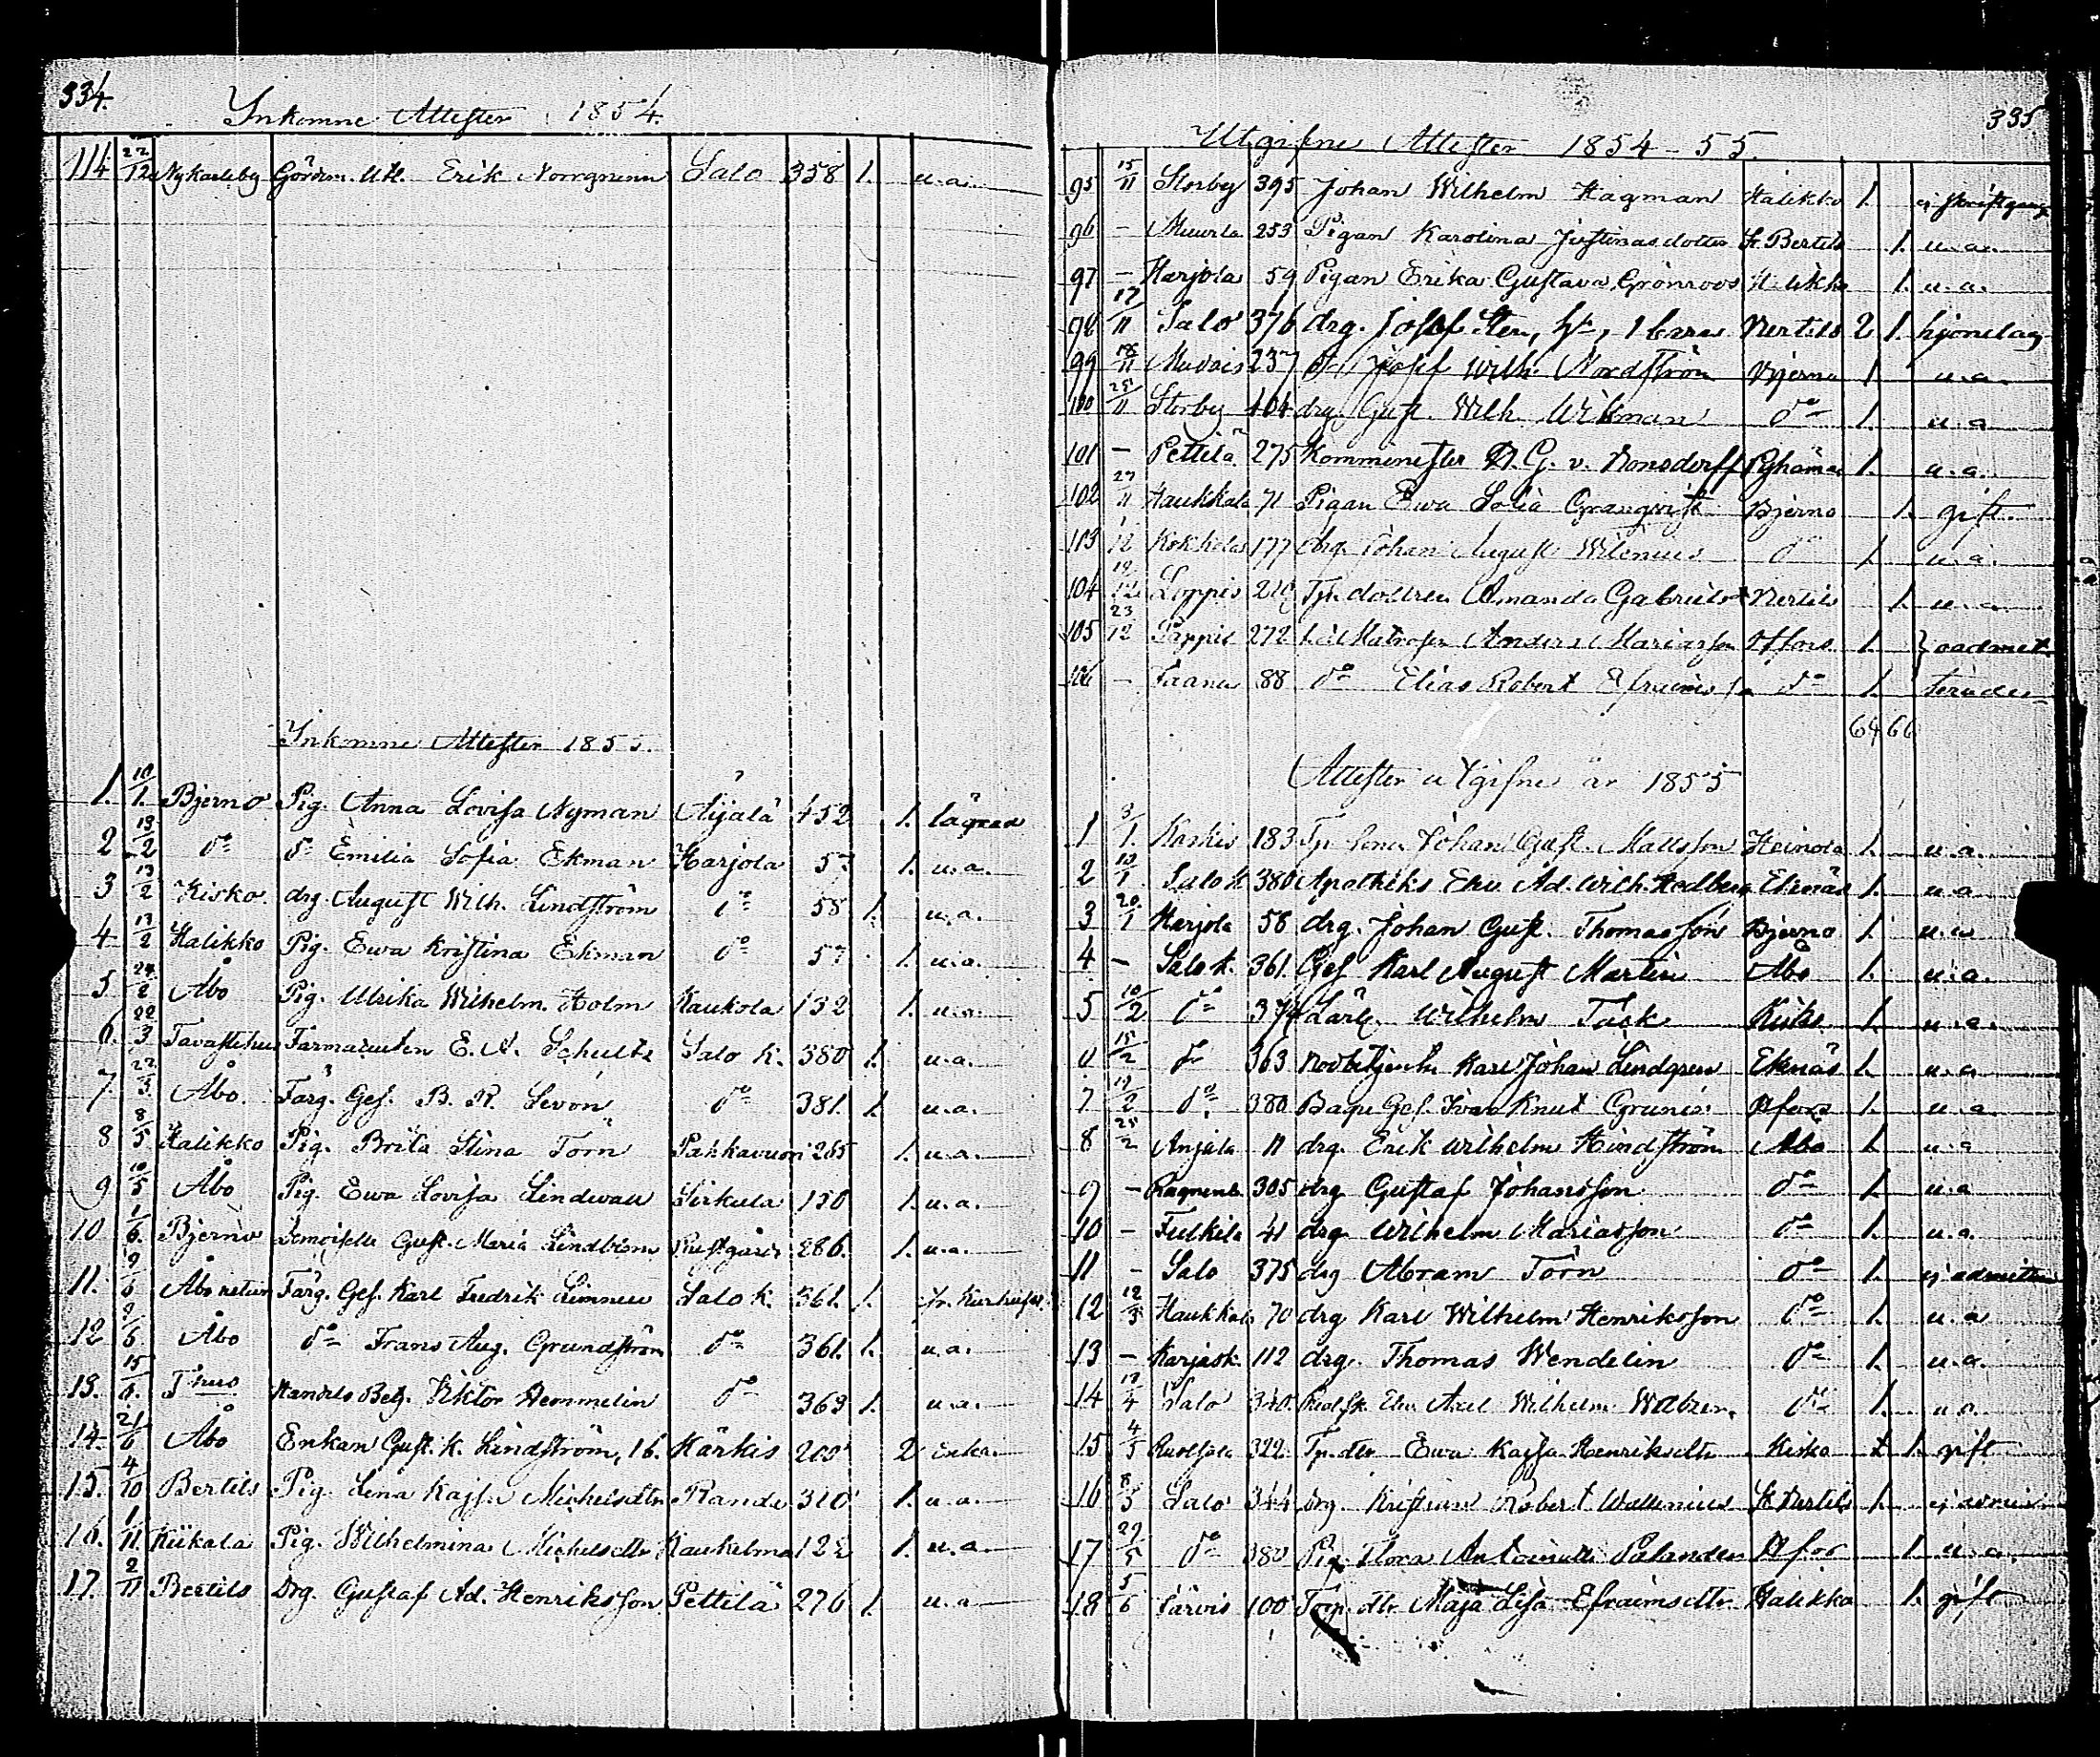 334.
Inkomne Attester 1854.
114 22/12 Nykarleby Erik Norrgrenn Salo 358 1. u.a.
Inkomne Attester 1855.
1. 10/1. Bjerno Pig. Anna Lovisa Nyman Aijala 452 1. lägrad
2 13/2 do do Emilia Sofia Ekman Harjola 57 1. u.a.
3 13/2 Kisko drg August Wilh. Lindström do 58 1. u.a.
4 13/2 Halikko Pig. Ewa Kristina Ekman do 57 1. u.a.
5 24/2 Åbo Pig. Ulrika Wilhelm. Holm Kaukola 132 1. u.a.
6. 22/3 Tavastehus Farmaceuten E. A. Schultz Salo K. 380 1. u.a.
7. 22/3 Åbo. Färg. Ges. B. R. Levon do 381. 1. u.a.
8 8/5 Halikko Pig. Brita Stina Törn Pahkavuori 265 1. u.a.
9 10/5 Åbo Pig. Ewa Lovisa Lindwall Sirkula 150 1. u.a.
10 1/6. Bjerno Demoiselle Gust. Maria Lindblom Prestgård 286. 1. u.a.
11. 9/6 Åbo retur Färg. Ges. Karl Fredrik Limnell Salo k. 361. 1. fr. Kurhuset
12 9/6 Åbo do Frans Aug. Grundström do 361. 1. u.a.
13. 15/6. Thus Handels Betj. Viktor Hemmelin do 363 1. u.a.
14. 21/6 Åbo Enkan Gust. K. Lindström, 1 b. Kärkis 200 2 enka.
15. 4/10 Bertils Pig. Lina Kajsa Michelsdtr Rande 310 1. u.a.
16. 1/11 Kiikala Pig. Wilhelmina Michelsdtr Kaukelma 122 1. u.a.
17. 2/11 Bertils Drg. Gustaf Ad. Henriksson Pettilä 276 1. u.a.
335
Utgifne Attester 1854-55.
95 15/11 Storby 395 Johan Wilhelm Hagman Halikko 1. ej skriftgång
96 - Muurla 253 Pigan Karolina Justinasdotter St. Bertils 1. u.a.
97 - Harjola 59 Pigan Erika Gustava Grönroos Halikko 1. u.a.
98 17/11 Salo 376 drg. Josef Sten, h., 1 barn Bertils 2 1. hjonelag
99 18/11 237 Josef Wilh. Nordström Bjerno 1 u.a.
100 25/11 Storby 404 drg. Gust. Wilh. Wikman do 1. u.a
101 - Pettilä 275 Kommenister A. G. v. Bonsdorff Pyhämaa 1. u.a.
102 27/11 Haukkala 71 Pigan Ewa Sofia Granqvist Bjerno 1. gift.
103 1/12 Kokkola 177 drg. Johan August Wilenius do 1. u.a.
104 19/12 Loppis 210 Tp. dottren Amanda Gabrielsd Bertils 1. u.a
105 23/12 Pappil 272 Matrosen Anders Mariasson Hfors. 1. } oadmit
106 - Faana 88 do Elias Robert Efraimsson do 1. terade
64 66
Attester utgifne år 1855
1 3/1. Karkis 183 Tp. sonen Johan Gust. Mattsson Heinola 1. u.a.
2 13/1 Salo k 380 Apotheks Elev Ad. Wilh. Hedberg Ekenäs 1. u.a
3 20/1 Harjola 58 drg. Johan Gust. Thomasson Bjerno 1. u.a
4 - Salo k. 361. Ges Karl August Martin Åbo 1. u.a.
5 10/2 do 374 Lärl. Wilhelm Tack Kisko 1. u.a.
6 15/2 do 363 Bodbetjent Karl Johan Lindgren Eknäs 1. u.a
7 19/2 do. 380 Bag Ges. Ivar Knut Grunér Hfors 1. u.a
8 25/2 Anjala 11 drg. Erik Wilhelm Hindström Åbo 1. u.a
9 - 305 drg Gustaf Johansson do 1. u.a
10 - Fulkila 41 drg Wilhelm Mariasson do 1. u.a.
11 - Salo 375 drg Abram Törn do 1. ej admitt
12 12/3 Haukkala 70 drg Karl Wilhelm Henriksson do 1. u.a
13 - Karjask. 112 drg. Thomas Wendelin do 1. u.a.
14 13/4 Salo 340. Elev Axel Wilhelm do 1. u.a.
15 4/5 322 Tp. dtr Ewa Kajsa Henriksdtr Kisko 1. gift
16 8/5 Salo 344 drg. Kristian Robert Wallenius St. Bertils 1. ej admit
17 29/5 do 380 Pig. Flora Antoinette Palander Hfors 1. u.a.
18 5/6 Järvis 100 Torp. dtr Maja Lisa Efraimsdtr. Halikko 1. gift